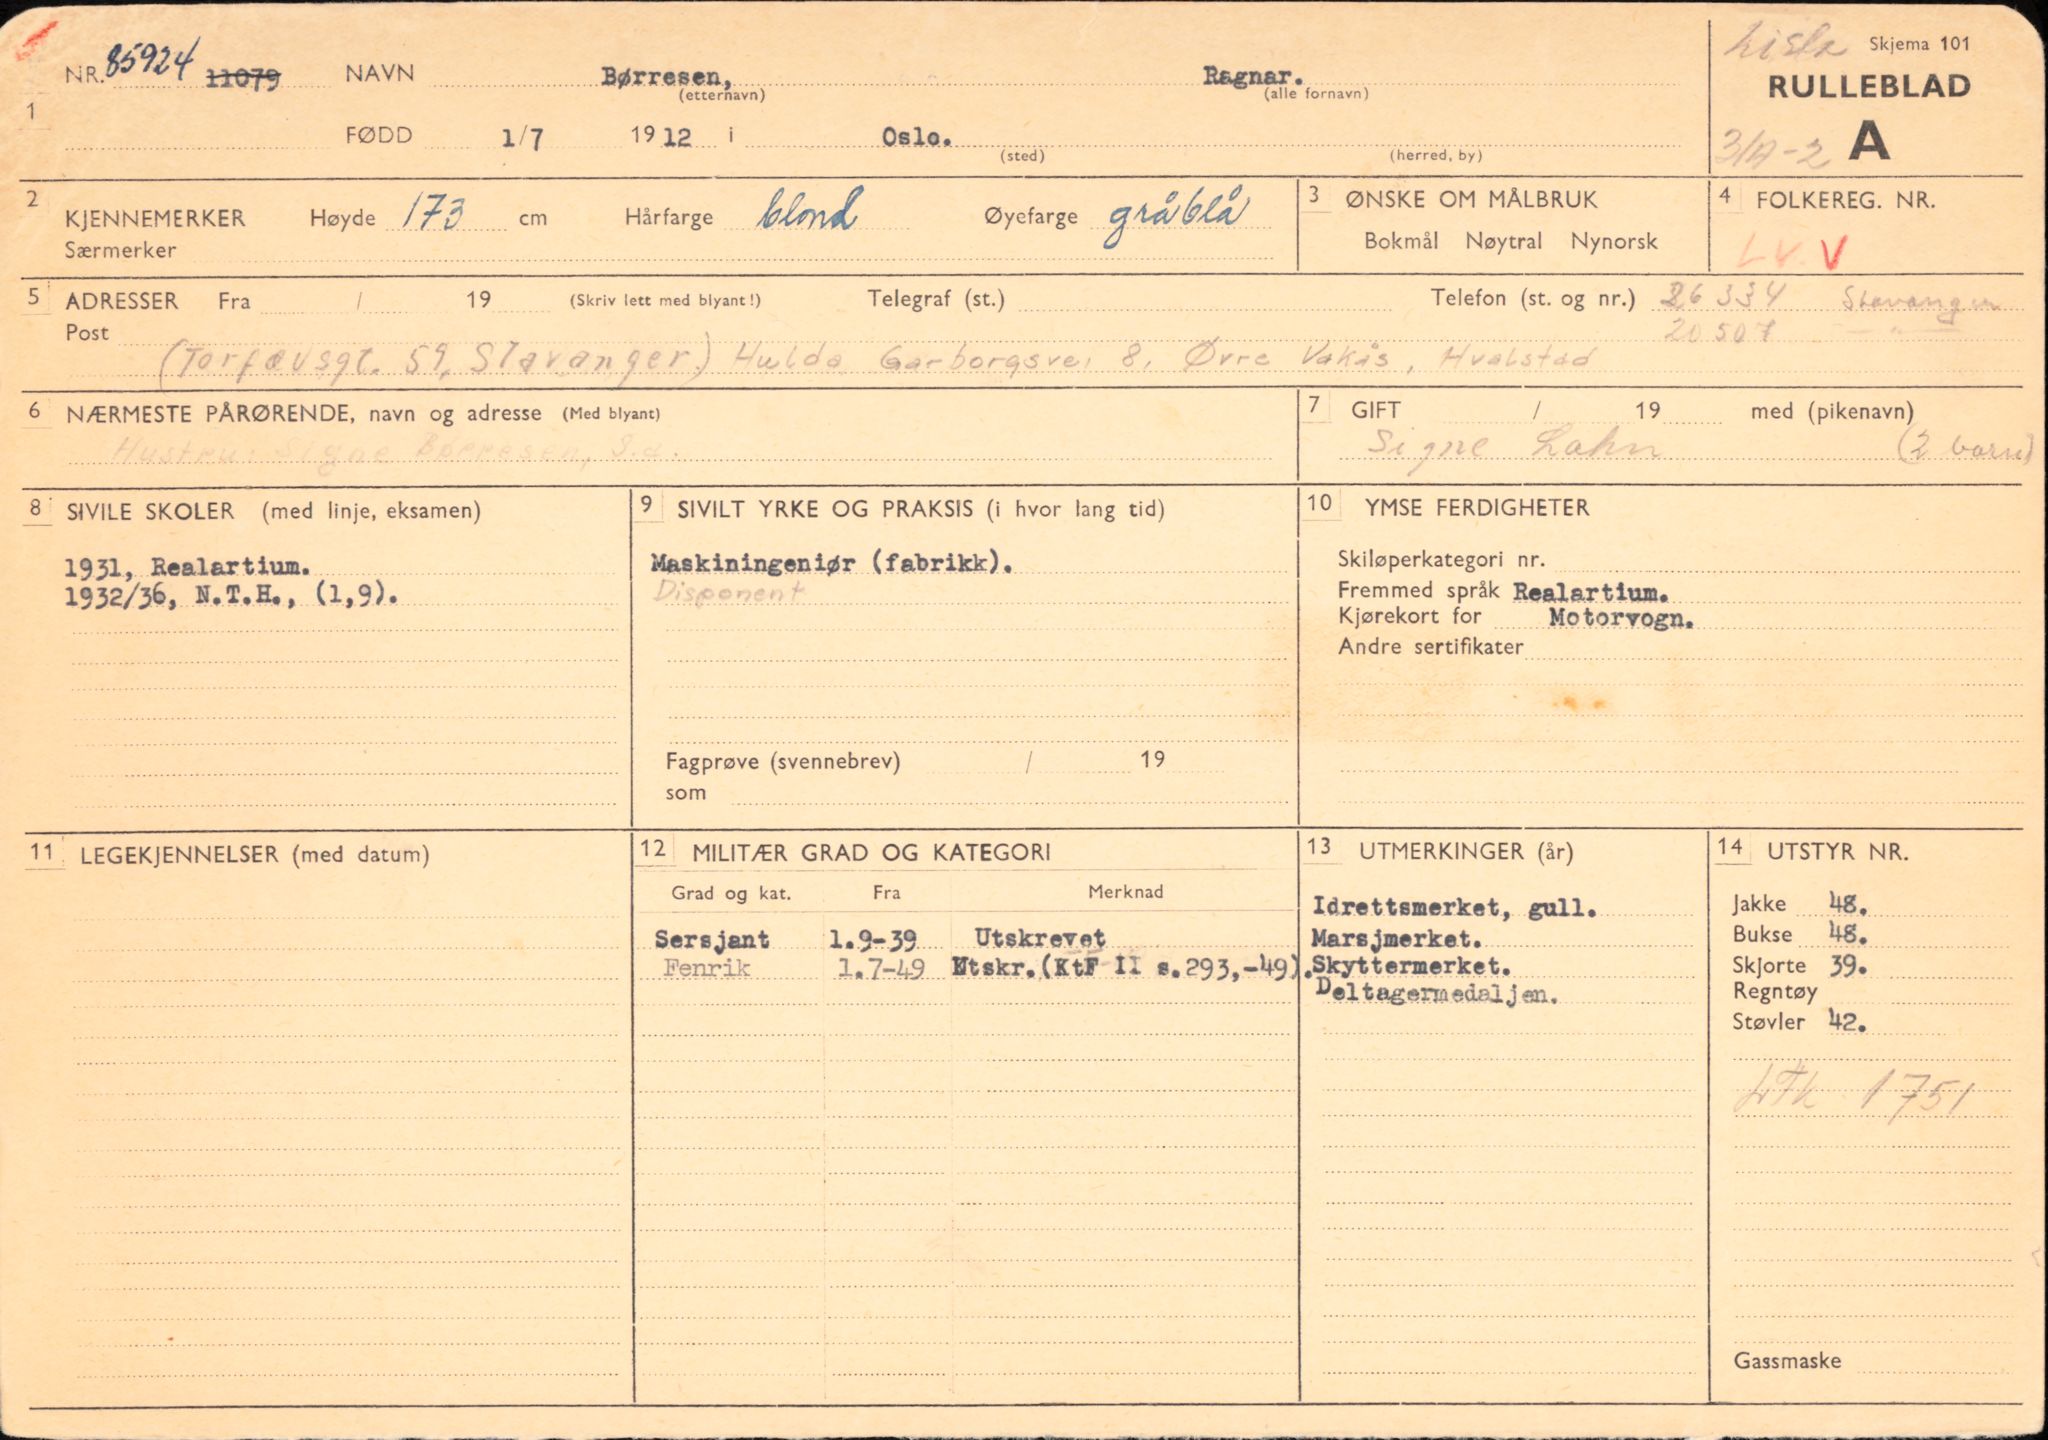 Skjema 101
NR. 85924 11079 NAVN Børresen, Ragnar.
(etternavn) (alle fornavn)
RULLEBLAD
1
FØDD 1/7 1912 i Oslo.
(sted) (herred, by)
31A-2 A
2 KJENNEMERKER Høyde 173 cm Hårfarge blond Øyefarge gråblå
Særmerker
3 ØNSKE OM MÅLBRUK
Bokmål Nøytral Nynorsk
4 FOLKEREG. NR.
LV. V
5 ADRESSER Fra / 19 (Skriv lett med blyant!) Telegraf (st.) Telefon (st. og nr.) 26334 Stavanger
Post 20507 — " —
(Torfæusgt. 59, Stavanger.) Hulda Garborgsvei 8, Øvre Vakås, Hvalstad
6 NÆRMESTE PÅRØRENDE, navn og adresse (Med blyant)
Hustru: Signe Børresen, S.a.
7 GIFT / 19 med (pikenavn)
Signe Lahn (2 barn)
8 SIVILE SKOLER (med linje, eksamen)
1931, Realartium.
1932/36, N.T.H., (1,9).
9 SIVILT YRKE OG PRAKSIS (i hvor lang tid)
Maskiningeniør (fabrikk).
Disponent
Fagprøve (svennebrev) / 19
som
10 YMSE FERDIGHETER
Skiløperkategori nr.
Fremmed språk Realartium.
Kjørekort for Motorvogn.
Andre sertifikater
11 LEGEKJENNELSER (med datum)
12 MILITÆR GRAD OG KATEGORI
Grad og kat. Fra Merknad
Sersjant 1.9-39 Utskrevet
Fenrik 1.7-49 Utskr.(KtF II s.293,-49).
13 UTMERKINGER (år)
Idrettsmerket, gull.
Marsjmerket.
Skyttermerket.
Deltagermedaljen.
14 UTSTYR NR.
Jakke 48.
Bukse 48.
Skjorte 39.
Regntøy
Støvler 42.
1751
Gassmaske